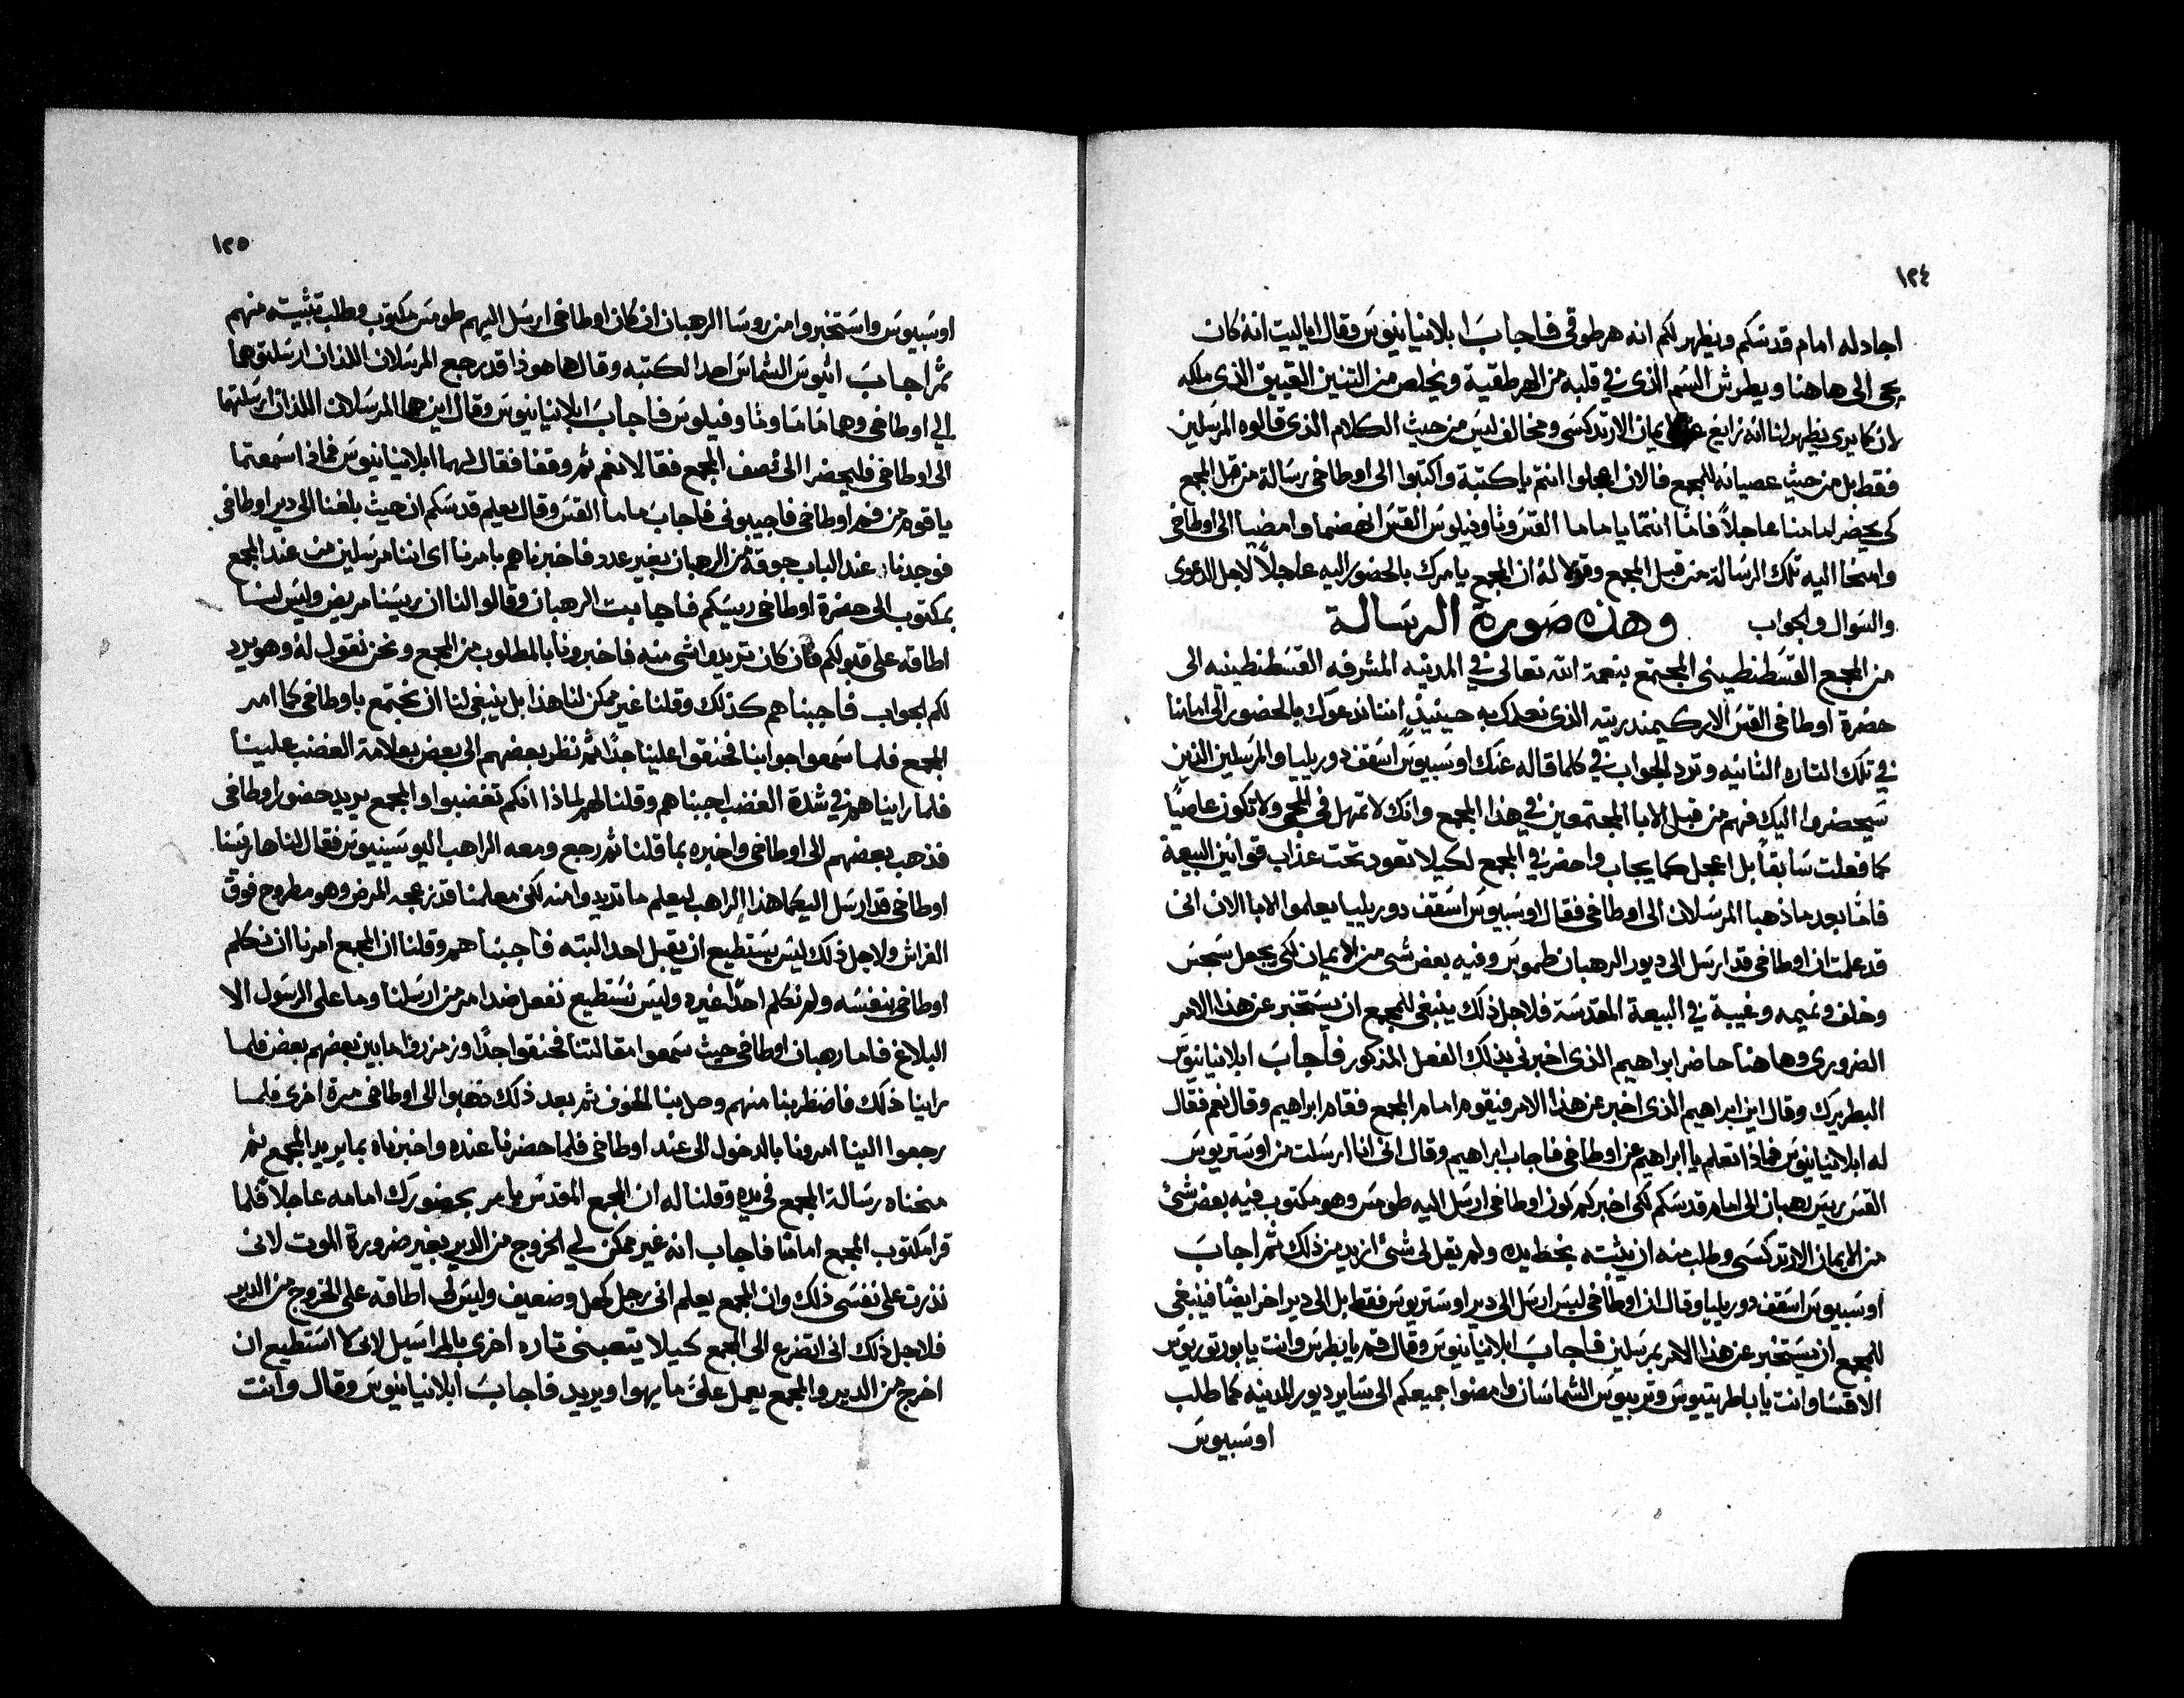 ١٢٤
اجادله امام قدسكم ويظهر لكم انه هرطوقي فاجاب ابلانيانيوس وقال اياليت انه كان
يجي الى هاهنا ويطرش السم الذي في قلبه من الهرطقية ويخلص من التنين العتيق الذي ملكه
لان كما يري يظهر لنا انه زايغ عن ايمان الارتدكسي ومخالف ليس من حيث الكلام الذي قالوه المرسلين
فقط بل من حيث عصيانه للمجمع فالان اعجلوا انتم يا كتبة واكتبوا الى اوطاخي رسالة من قبل المجمع
كي يحضر امامنا عاجلاً فاما انتما يا ماما القس وثاوفيلوس القس انهضما وامضيا الى اوطاخي
وامنحا اليه تلك الرسالة من قبل المجمع وقولا له ان المجمع يامرك بالحضور اليه عاجلاً لاجل الدعوى
والسوال والجواب وهذه صورة الرسالة
من المجمع القسطنطيني المجتمع بنعمة الله تعالى في المدينه المشرفه القسطنطينيه الى
حضرة اوطاخي القس الاركيمندريتيه الذي نعلمك به حينيذٍ اننا ندعوك بالحضور الى امامنا
في تلك التاره الثانيه وترد الجواب في كلما قاله عنك اوسبيوس اسقف دوريليا والمرسلين الذين
سيحضروا اليك فهم من قبل الابا المجتمعين في هذا المجمع وانك لا تمهل في المجي ولا تكون عاصيًا
كما فعلت سابقاً بل اعجل كما يجاب واحضر في المجمع لكيلا تعود تحت عذاب قوانين البيعة
فاما بعد ما ذهبا المرسلان الى اوطاخي فقال اوسبيوس اسقف دوريليا يعلموا الابا الان اني
قد علمت ان اوطاخي قد ارسل الى ديور الرهبان طموس وفيه بعض شي من الايمان لكي يجعل سجس
وخلف ونميمه وغيبة في البيعة المقدسة فلاجل ذلك ينبغي للمجمع ان يستخبر عن هذا الامر
الضروري وهاهنا حاضر ابراهيم الذي اخبرني بذلك الفعل المذكور فاجاب ابلانيانيوس
البطريرك وقال اين ابراهيم الذي اخبر عن هذا الامر فيقوم امام المجمع فقام ابراهيم وقال نعم فقال
له ابلانيانيوس فماذا تعلم يا ابراهيم عن اوطاخي فاجاب ابراهيم وقال انني انا ارسلت من اوستريوس
القس ريس رهبان الى امام قدسكم لكي اخبركم كون اوطاخي ارسل اليه طومس وهو مكتوب فيه بعض شئ
من الايمان الارتدكسي وطلب منه ان يثبته بخط يده ولم يقل لي شئ ازيد من ذلك ثم اجاب
اوسبيوس اسقف دوريليا وقال ان اوطاخي ليس ارسل الى دير اوستريوس فقط بل الى دير اخر ايضًا فينبغي
للمجمع ان يستخبر عن هذا الامر بمرسلين فاجاب ابلانيانيوس وقال قم يا بطرس وانت يا بورتوريوس
الاقسا وانت يا باطريتيوس وتريبيوس الشماسان وامضوا جميعكم الى ساير ديور المدينه كما طلب
اوسبيوس
١٢٥
اوسبيوس واستخبروا من روسا الرهبان ان كان اوطاخي ارسل اليهم طومس مكتوب وطلب تثبيته منهم
ثم اجاب اثيوس الشماس احد الكتبه وقال ها هوذا قد رجع المرسلان اللذان ارسلتوهما
الى اوطاخي وهما ماما وثاوفيلوس فاجاب ابلانيانيوس وقال اين هما المرسلان اللذان ارسلتهما
الى اوطاخي فليحضرا الى نصف المجمع فقالا نعم ثم وقفا فقال لهما ابلانيانيوس فماذا سمعتما
يا قوم من فم اوطاخي فاجيبوني فاجاب ماما القس وقال يعلم قدسكم ان حيث بلغنا الى دير اوطاخي
فوجدنا عند الباب جوقة من الرهبان بغير عدد فاخبرناهم بامرنا اي اننا مرسلين من عند المجمع
بمكتوب الى حضرة اوطاخي ريسكم فاجابت الرهبان وقالوا لنا ان ريسنا مريض وليس لنا
اطاقه على قبولكم فان كان تريدوا شي منه فاخبرونا بالمطلوب من المجمع ونحن نقول له وهو يرد
لكم الجواب فاجبناهم كذلك وقلنا غير ممكن لنا هذا بل ينبغي لنا ان نجتمع باوطاخي كما امر
المجمع فلما سمعوا جوابنا فحنقوا علينا جدًا ثم نظر بعضهم الى بعض بعلامة الغضب علينا
فلما رايناهم في شدة الغضب اجبناهم وقلنا لهم لماذا انكم تغضبوا والمجمع يريد حضور اوطاخي
فذهب بعضهم الى اوطاخي واخبره بما قلنا ثم رجع ومعه الراهب اليوسينيوس فقال لنا ها ريسنا
اوطاخي قد ارسل اليكما هذا الراهب ليعلم ما تريدوا منه لكن معلمنا قد زعجه المرض وهو مطروح فوق
الفراش ولاجل ذلك ليس يستطيع ان يقبل احد البته فاجبناهم وقلنا ان المجمع امرنا ان نكلم
اوطاخي بنفسه ولم نكلم احدًا غيره وليس نستطيع نفعل ضد امر من ارسلنا وما على الرسول الا
البلاغ فاما رهبان اوطاخي حيث سمعوا مقالتنا فحنقوا جدًا وزمزروا ما بين بعضهم بعض فلما
راينا ذلك فاضطربنا منهم وحل بنا الخوف ثم بعد ذلك ذهبوا الى اوطاخي مرة اخرى فلما
رجعوا الينا امرونا بالدخول الى عند اوطاخي فلما حضرنا عنده واخبرناه بما يريد المجمع ثم
منحناه رسالة المجمع في يده وقلنا له ان المجمع المقدس يامر بحضورك امامه عاجلاً فلما
قرا مكتوب المجمع امامنا فاجاب انه غير ممكن لي الخروج من الدير بغير ضرورة الموت لانى
نذرت على نفسي ذلك وان المجمع يعلم اني رجل كهل وضعيف وليس لي اطاقه على الخروج من الدير
فلاجل ذلك اني اتضرع الى المجمع كيلا يتعبني تاره اخرى بالمراسيل لانى لا استطيع ان
اخرج من الدير والمجمع يعمل علىّ ما يهوا ويريد فاجاب ابلانيانيوس وقال وانت